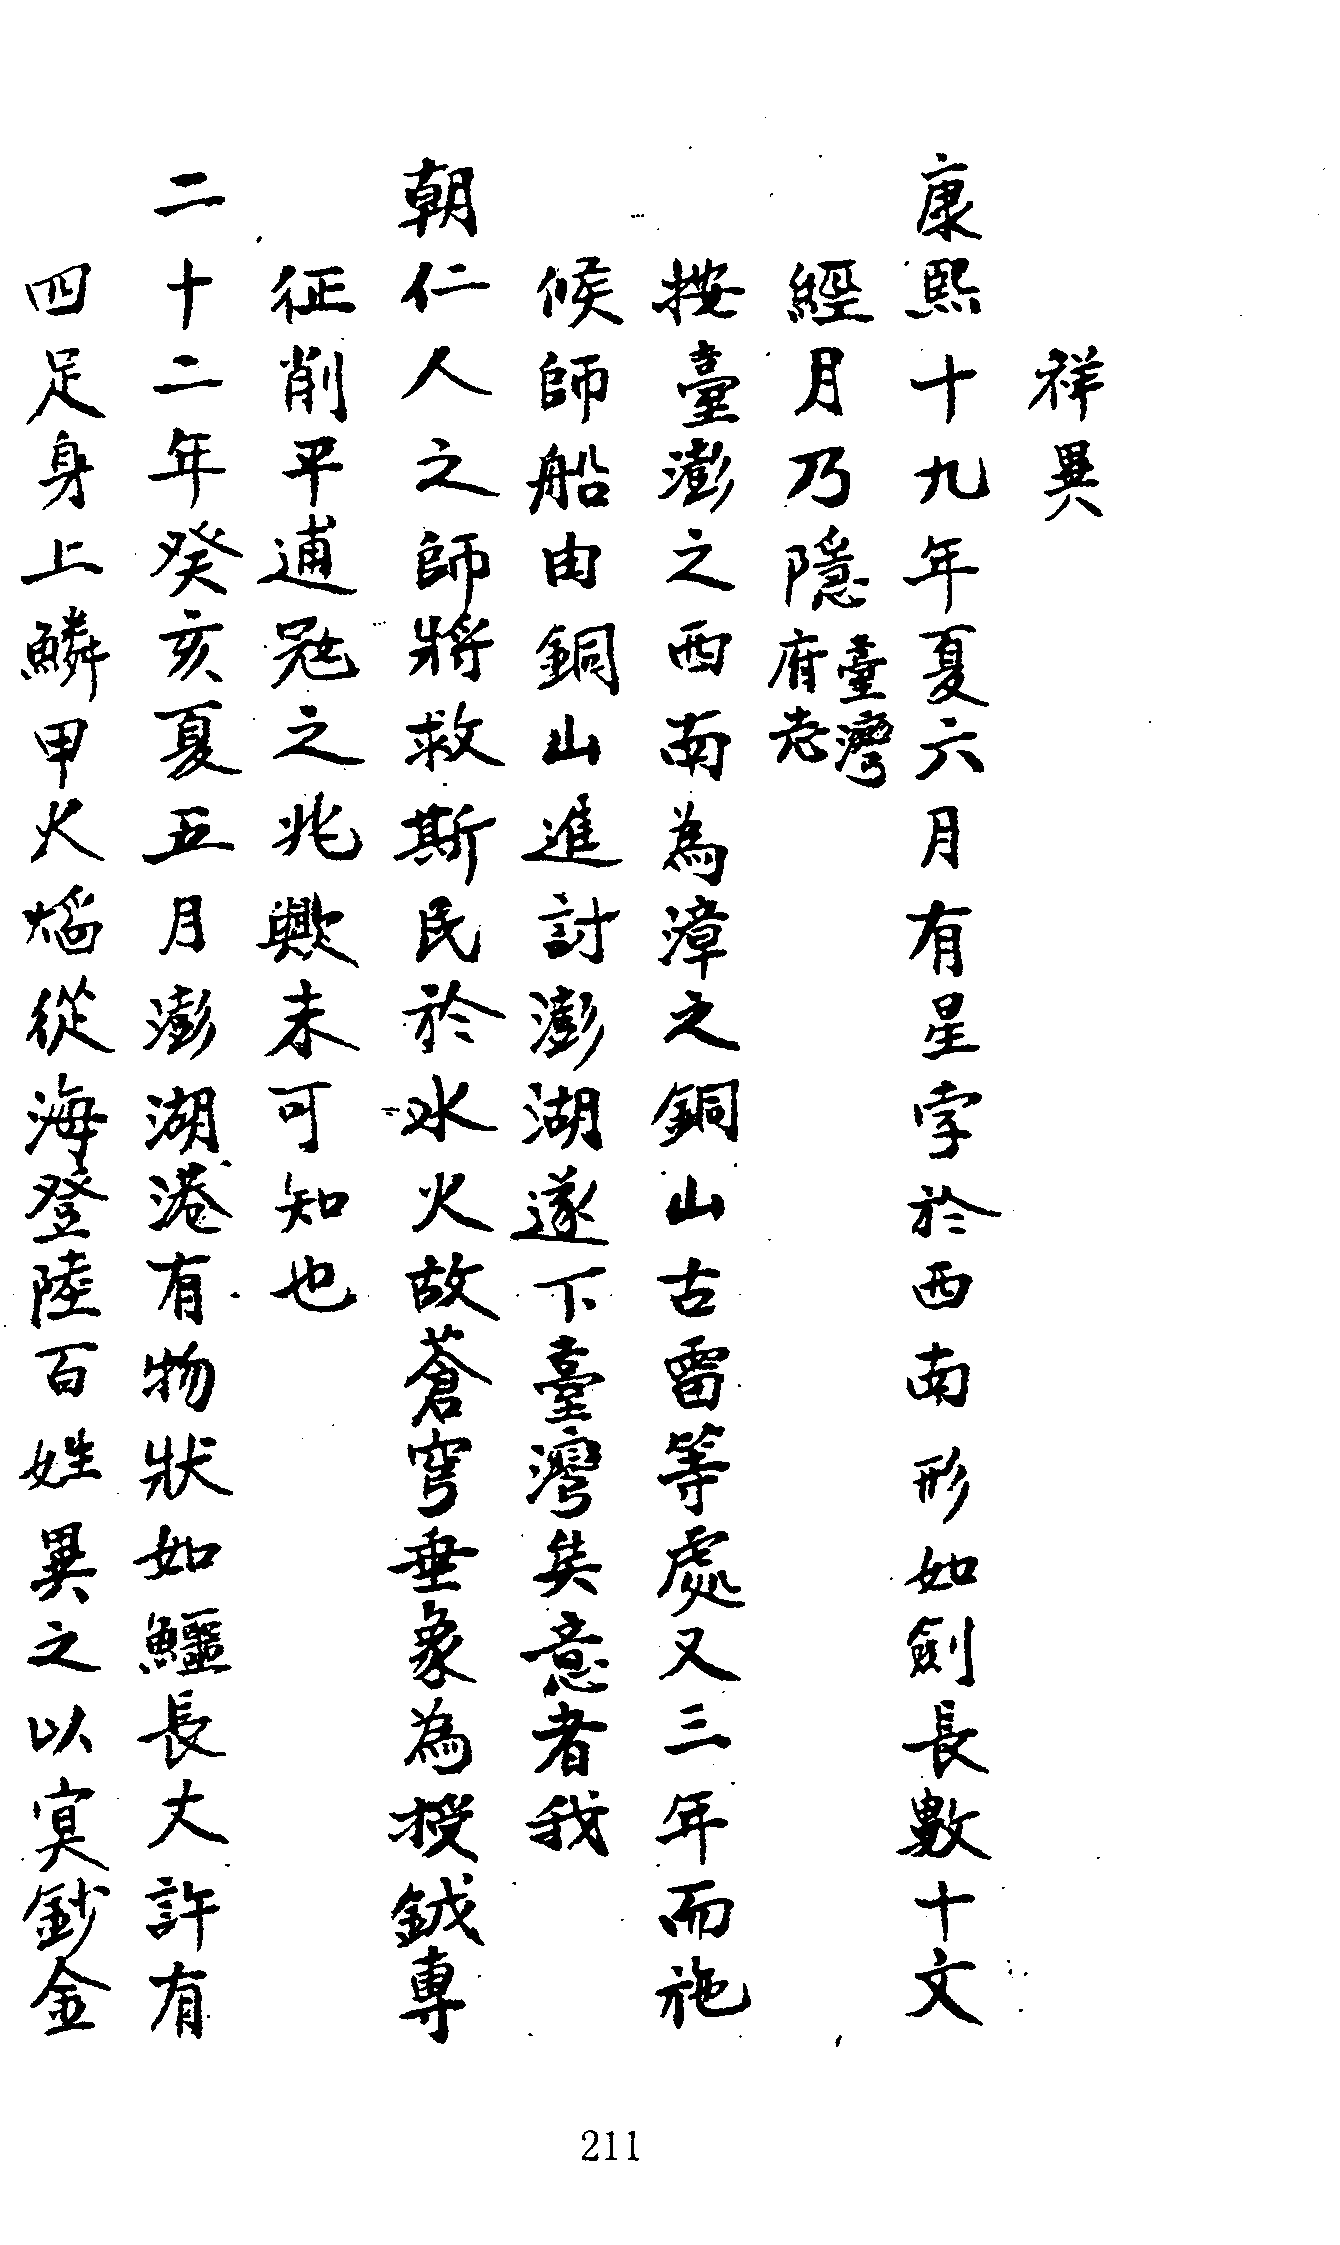 祥異
康熙十九年夏六月有星孛於西南形如劍長數十文
經月乃隱臺灣府志
按臺澎之西南為漳之銅山古雷等處又三年而施
候師船由銅山進討澎湖遂下臺灣矣意者我
朝仁人之師將救斯民於水火故蒼穹垂象為授鉞專
征削平逋冦之兆歟未可知也
二十二年癸亥夏五月澎湖港有物狀如鱷長丈許有
四足身上鱗甲火焰從海登陸百姓異之以寘鈔金
211